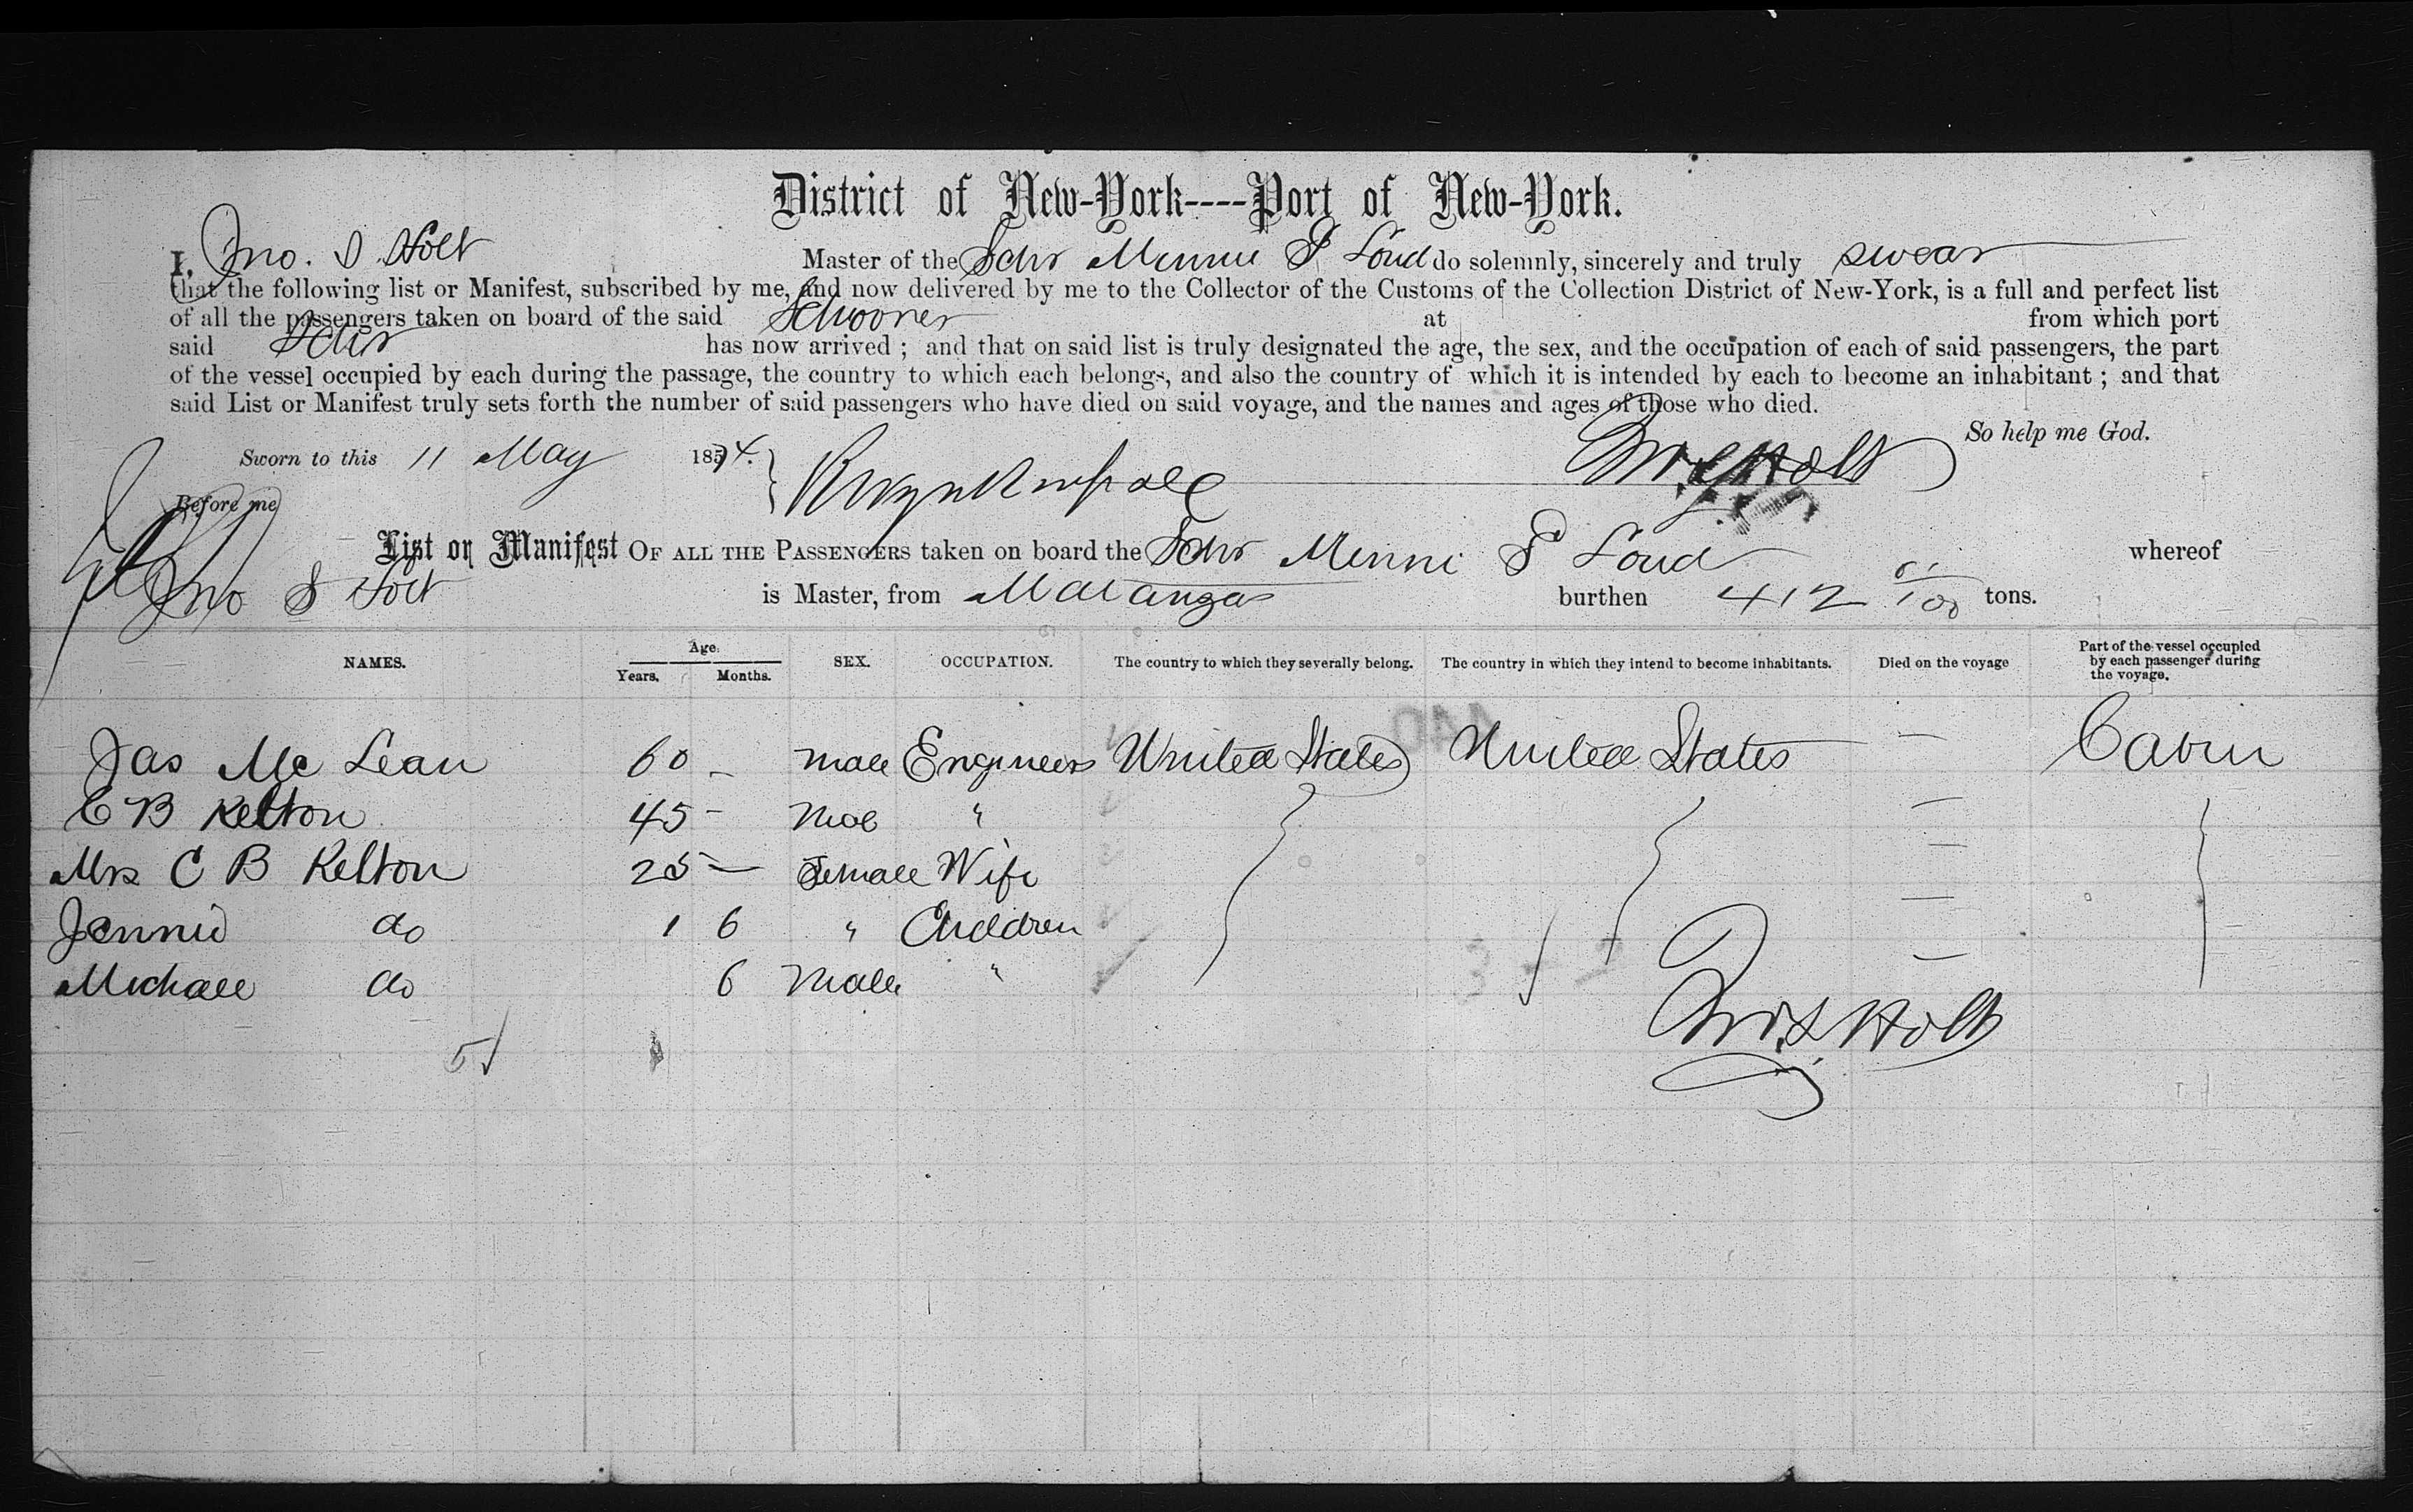 District of New-York----Port of New-York.
I, Jno. S Holt Master of the Schr Minnie S Loud do solemnly, sincerely and truly swear
that the following list or Manifest, subscribed by me, and now delivered by me to the Collector of the Customs of the Collection District of New-York, is a full and perfect list
of all the passengers taken on board of the said Schooner at from which port
said Schr has now arrived ; and that on said list is truly designated the age, the sex, and the occupation of each of said passengers, the part
of the vessel occupied by each during the passage, the country to which each belongs, and also the country of which it is intended by each to become an inhabitant ; and that
said List or Manifest truly sets forth the number of said passengers who have died on said voyage, and the names and ages of those who died.
So help me God.
Sworn to this 11 May 1874. Jno. S Holt
Before me
List or Manifest OF ALL THE PASSENGERS taken on board the Schr Minni S Loud whereof
Jno S Holt is Master, from Matanzas burthen 412 /100 tons.
NAMES. Age. Years. Months. SEX. OCCUPATION. The country to which they severally belong. The country in which they intend to become inhabitants. Died on the voyage Part of the vessel occupied by each passenger during the voyage.
Jas Mc Lean 60 – male Engineers United States United States — Cabin
C B Kelton 45 – Male " —
Mrs C B Kelton 25 — Female Wife —
Jennie do 1 6 " Children —
Michael do 6 Male " —
Jno. S Holt
5